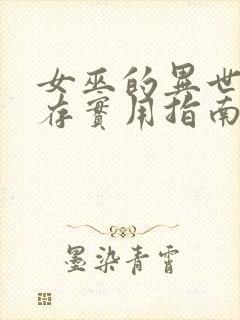 女巫的異世
存實用指南
墨染青霄